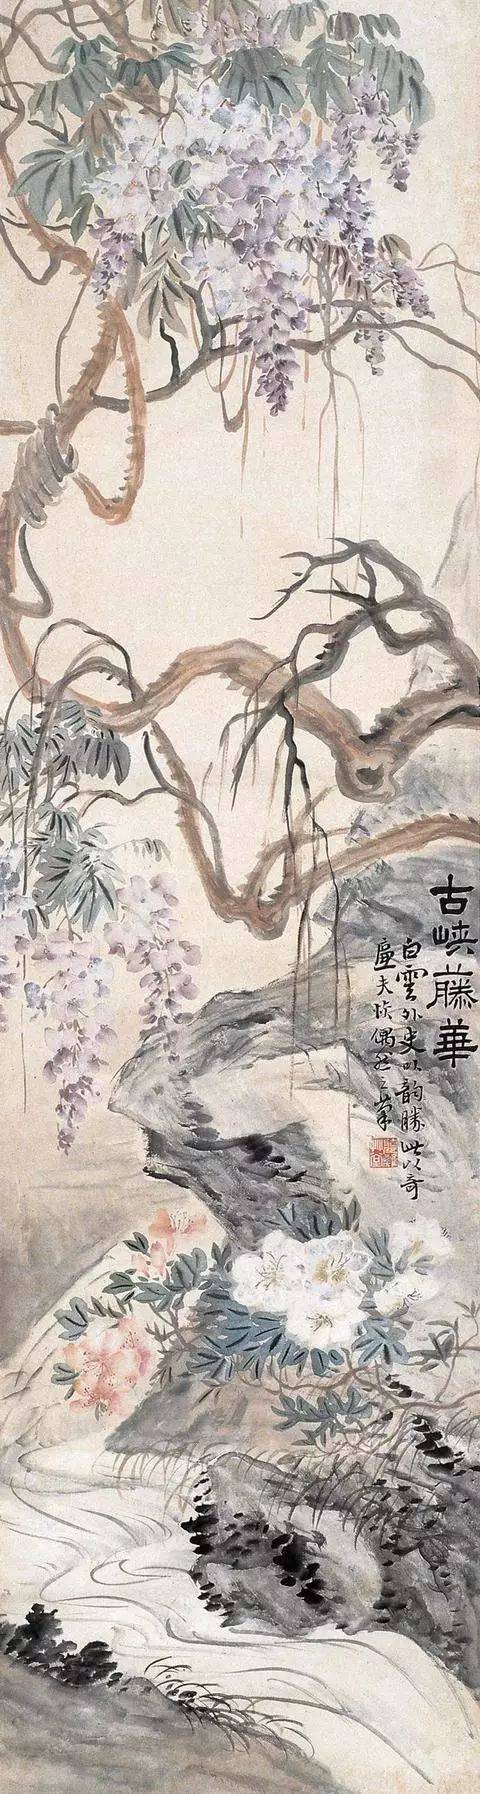 古峽藤華
白雲外史以韵勝此以奇
廉夫恢偶然之筆